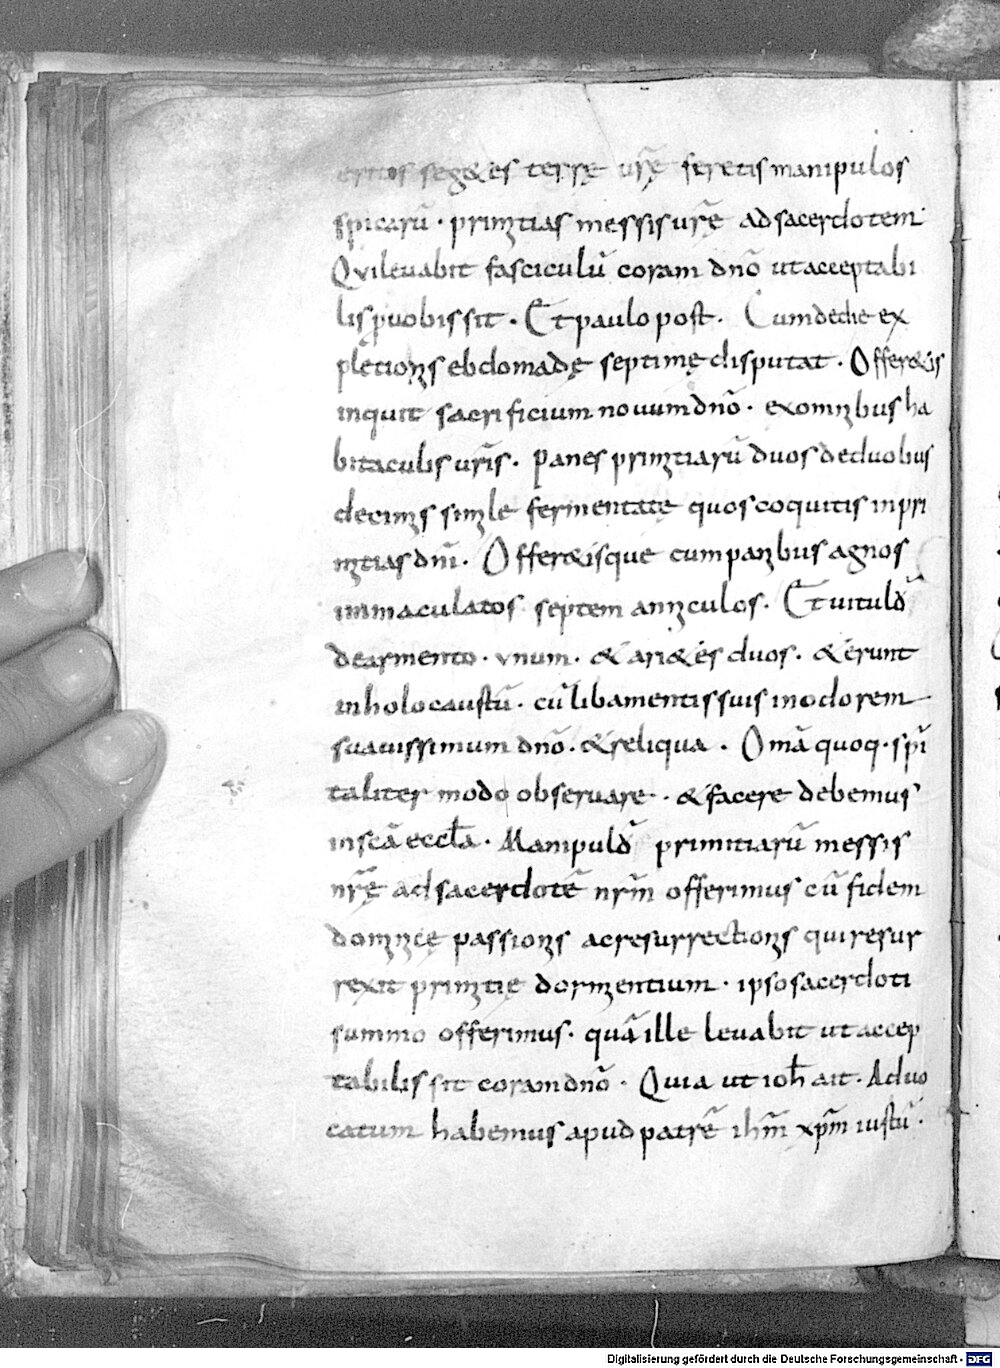 seg&es terrę urę̄ feretis manipulos
spicarū · primitias messis urę̄ ad sacerdotem
Qui leuabit fasciculū coram dnō ut acceptabi
lis pro uobis sit · Et paulo post · Cum de die ex
pletionis ebdomadę septimę disputat · Offer&is
inquit sacrificium nouum dnō · ex omnibus ha
bitaculis uris̄ · panes primitiarū duos de duobus
decimis simile fermentatę quos coquitis in pri
mitias dnī · Offer&isque cum panibus agnos
immaculatos septem anniculos · Et uitulū
de armento · unum · & ari&es duos · & erunt
in holocaustū · cū libamentis suis in odorem
suauissimum dnō · & reliqua · Omā quoq · spī
taliter modo obseruare · & facere debemus
in scā eccła · Manipulū primitiarū messis
nrę̄ ad sacerdotē nrm̄ offerimus cū fidem
dominicę passionis ac resurrectionis qui resur
rexit primitię dormientium · ipso sacerdoti
summo offerimus · quā ille leuabit ut accep
tabilis sit coram dnō · Quia ut ioh̄ ait · Aduo
catum habemus apud patrē ihm̄ xpm̄ iustū ·
Digitalisierung gefördert durch die Deutsche Forschungsgemeinschaft - DFG